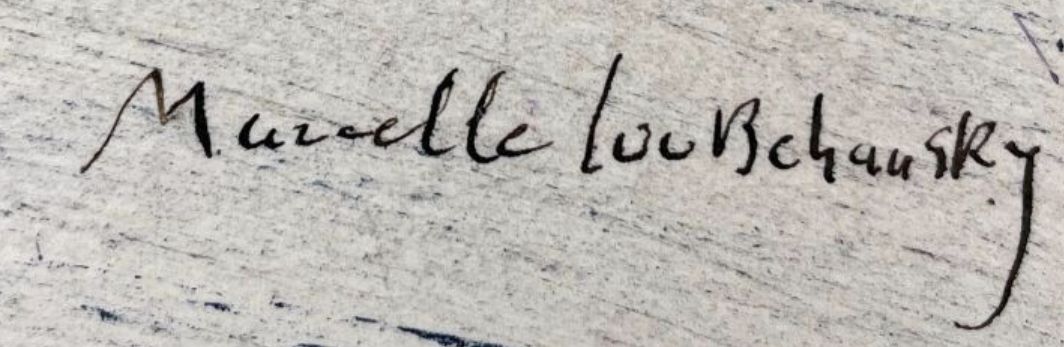 Marcelle LouBchansky